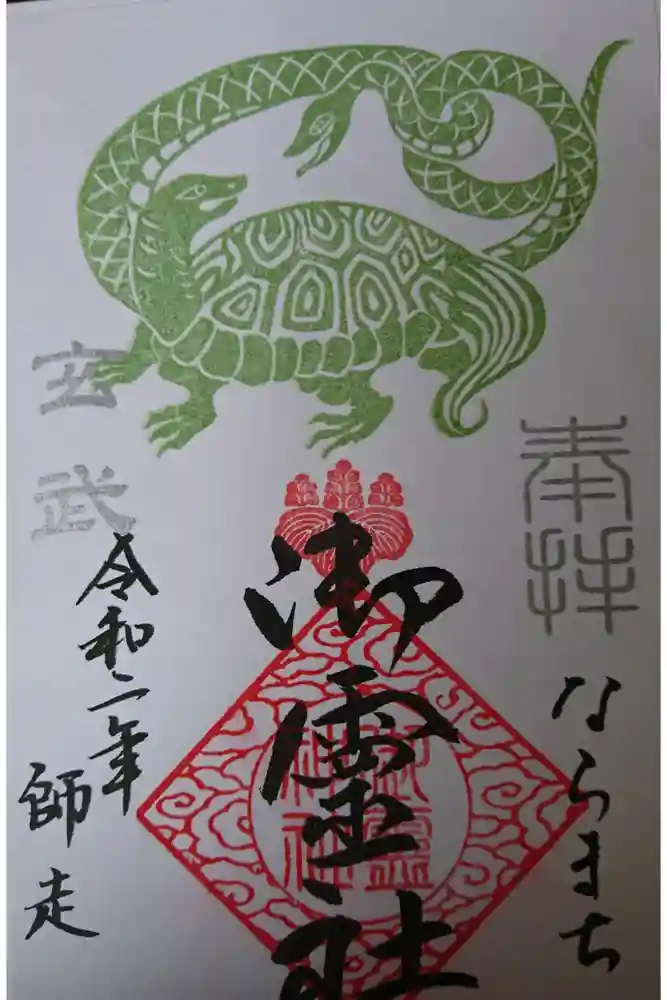 奉拝
ならまち
御靈社
御靈神社
玄武
令和二年
師走